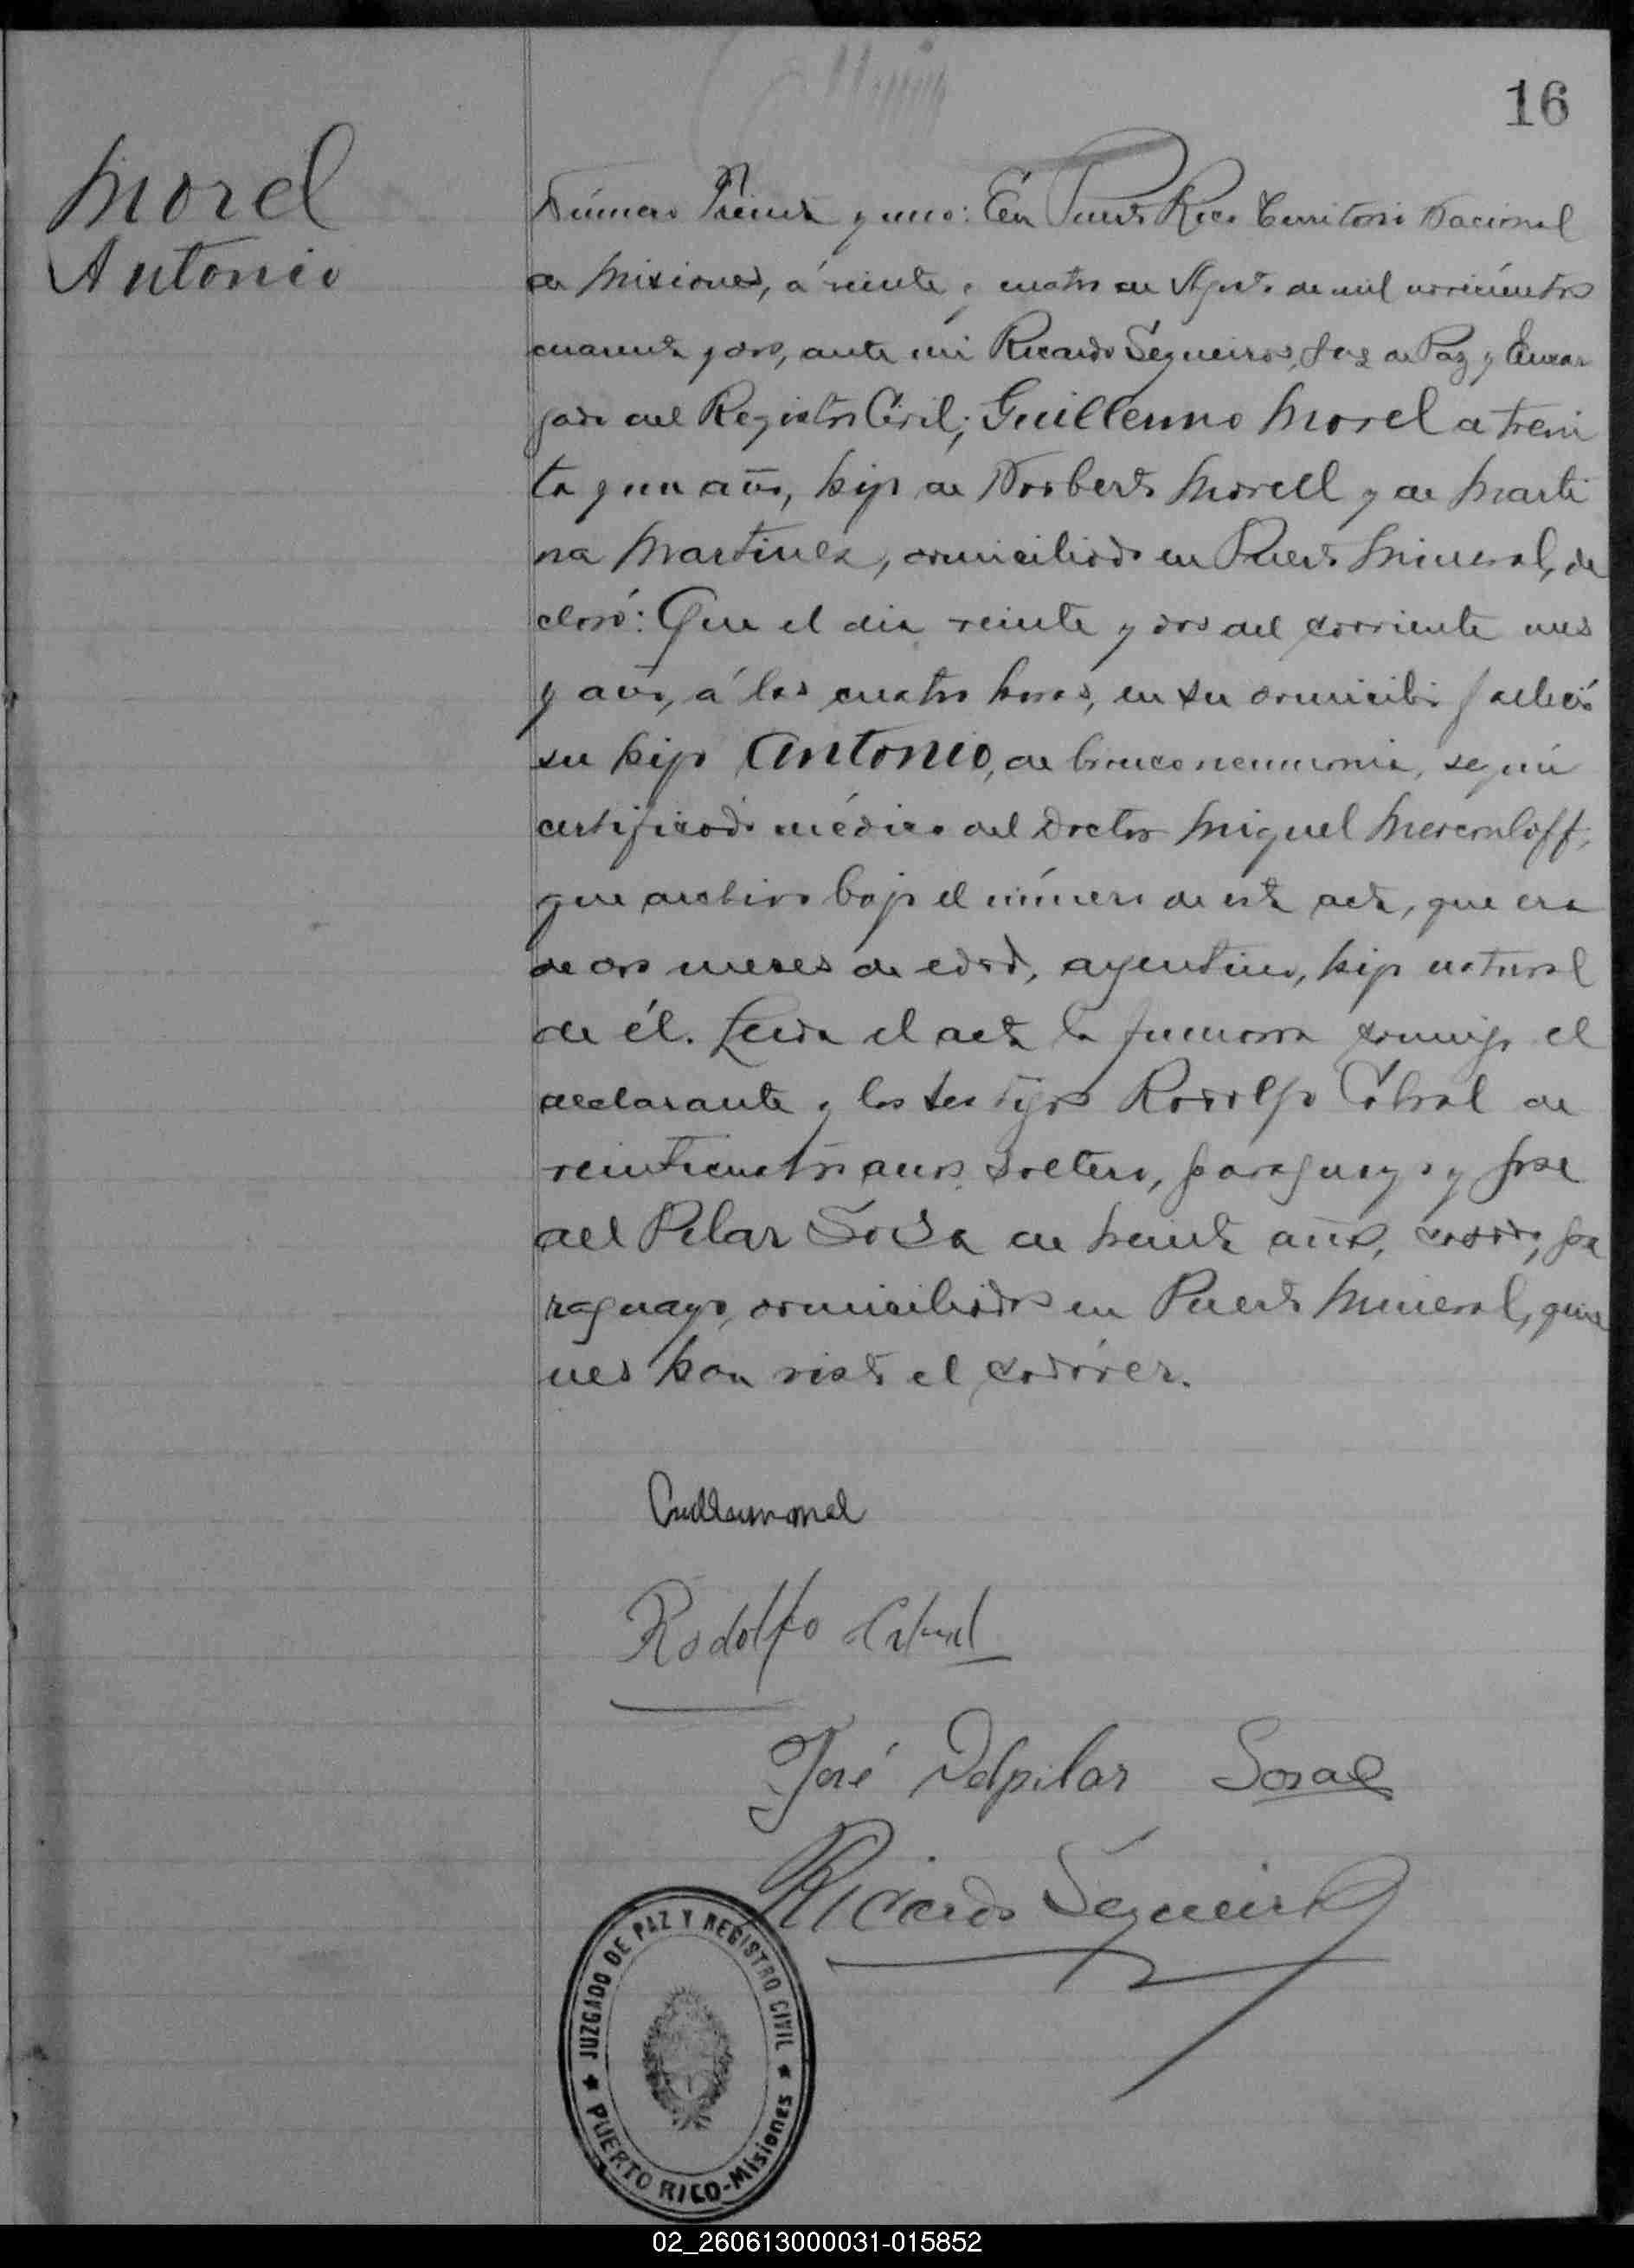 16
Morel
Antonio
Número Treinta y uno: En Puerto Rico Territorio Nacional
de Misiones, á veinte y cuatro de Agosto de mil novecientos
cuarenta y dos, ante mi Ricardo Segueiros, Juez de Paz y Encar
gado del Registro Civil; Guillermo Morel de trein
ta y un años, hijo de Norberto Morell y de Marti
na Martinez, domiciliado en Puerto Mineral, de
claró: Que el dia veinte y dos del corriente mes
y año, á las cuatro horas, en su domicilio falleció
su hijo Antonio, de bronconeumonia, según
certificado médico del Doctor Miguel
que archivo bajo el número de esta acta, que era
de dos meses de edad, argentino, hijo natural
de él. Leida el acta la firmaron conmigo el
declarante y los testigos Rodolfo Cabral de
veinticuatro años, soltero, paraguayo y José
del Pilar Sosa de treinta años, casado, pa
raguayo, domiciliados en Puerto Mineral, quie
nes han visto el cadáver.
Rodolfo Cabral
José Delpilar Sosa
Ricardo Segueiros
JUZGADO DE PAZ Y REGISTRO CIVIL
PUERTO RICO-Misiones
02_260613000031-015852